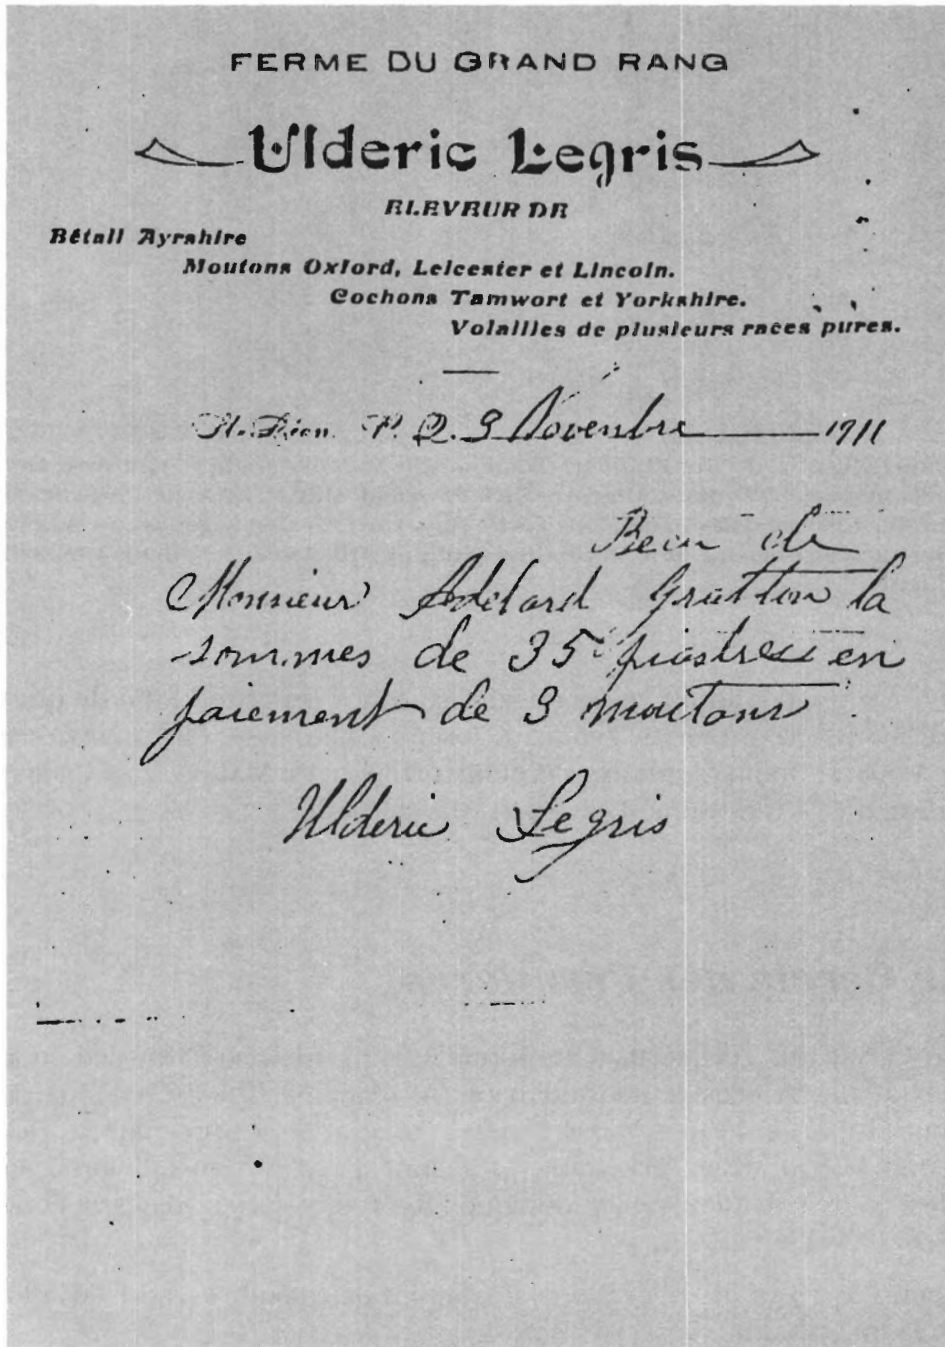 FERME DU GRAND RANG
Ulderic Legris
ELEVEUR DE
Bétail Ayrshire
Moutons Oxford, Leicester et Lincoln.
Cochons Tamwort et Yorkshire.
Volailles de plusieurs races pures.
St-Léon P. Q. 9 Novembre 1911
Recu de
Monsieur Adelard Gratton la
sommes de 35 piastres en
paiement de 3 moutons
Ulderic Legris